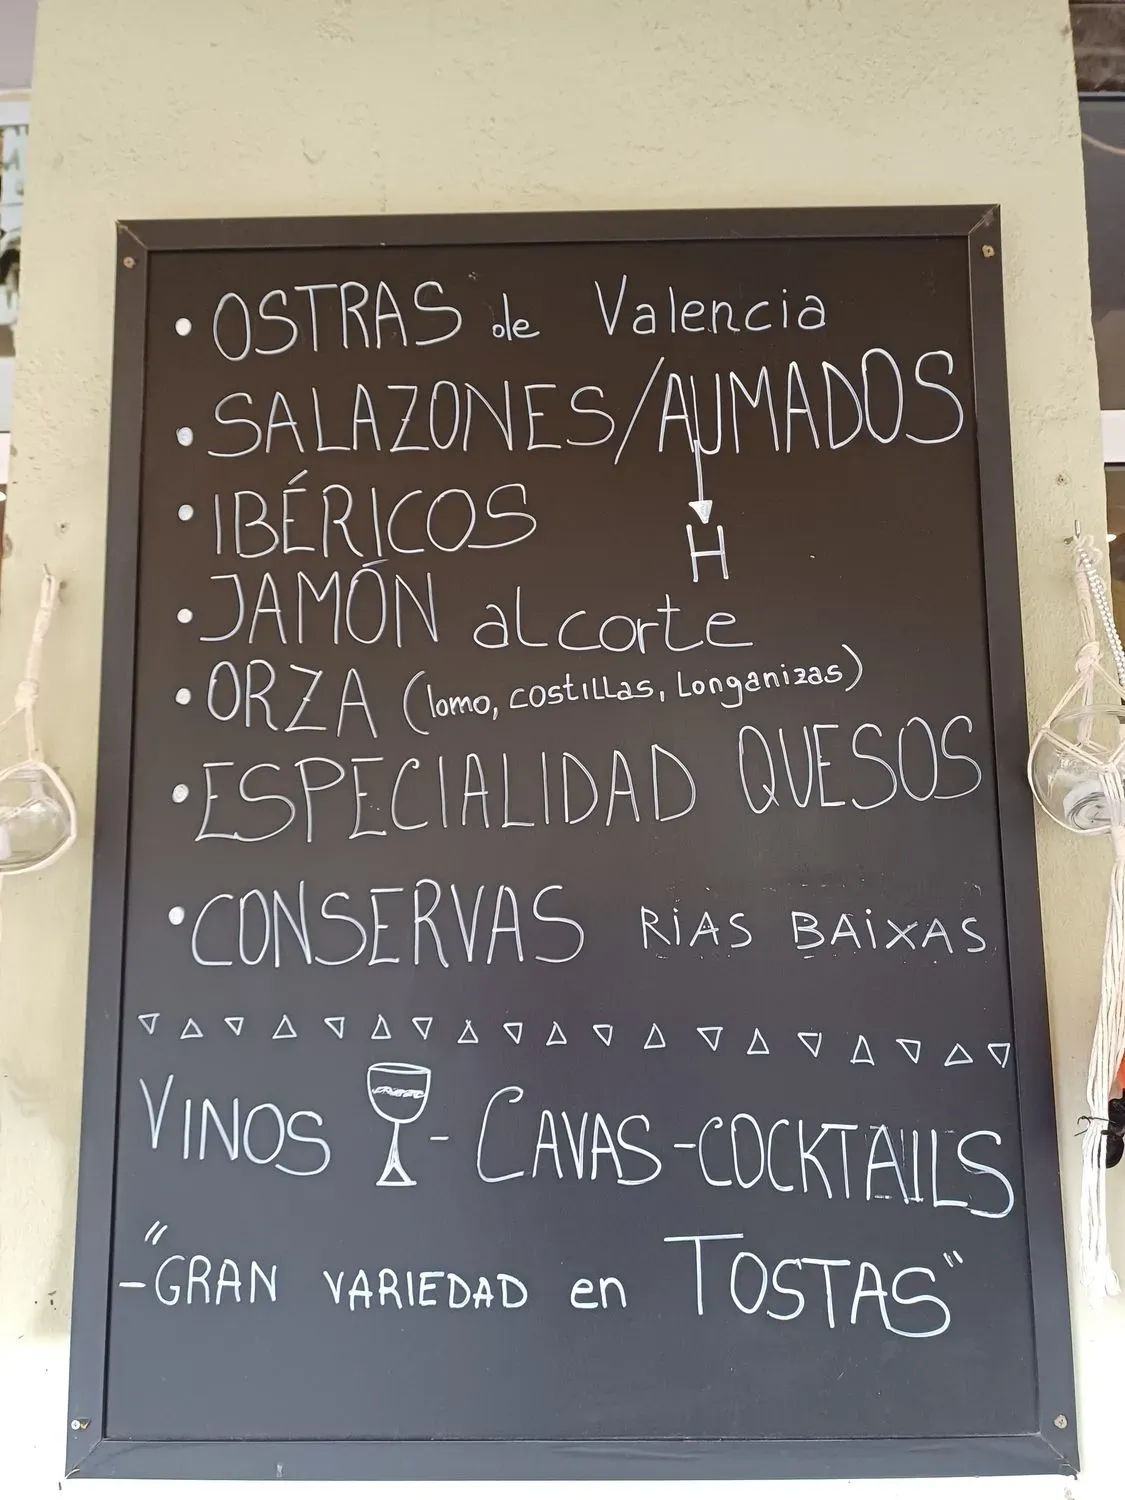 • OSTRAS de Valencia
• SALAZONES/AUMADOS
H
• IBÉRICOS
• JAMÓN al corte
• ORZA (lomo, costillas, Longanizas)
• ESPECIALIDAD QUESOS
• CONSERVAS RIAS BAIXAS
VINOS - CAVAS - COCKTAILS
- "GRAN VARIEDAD en TOSTAS"